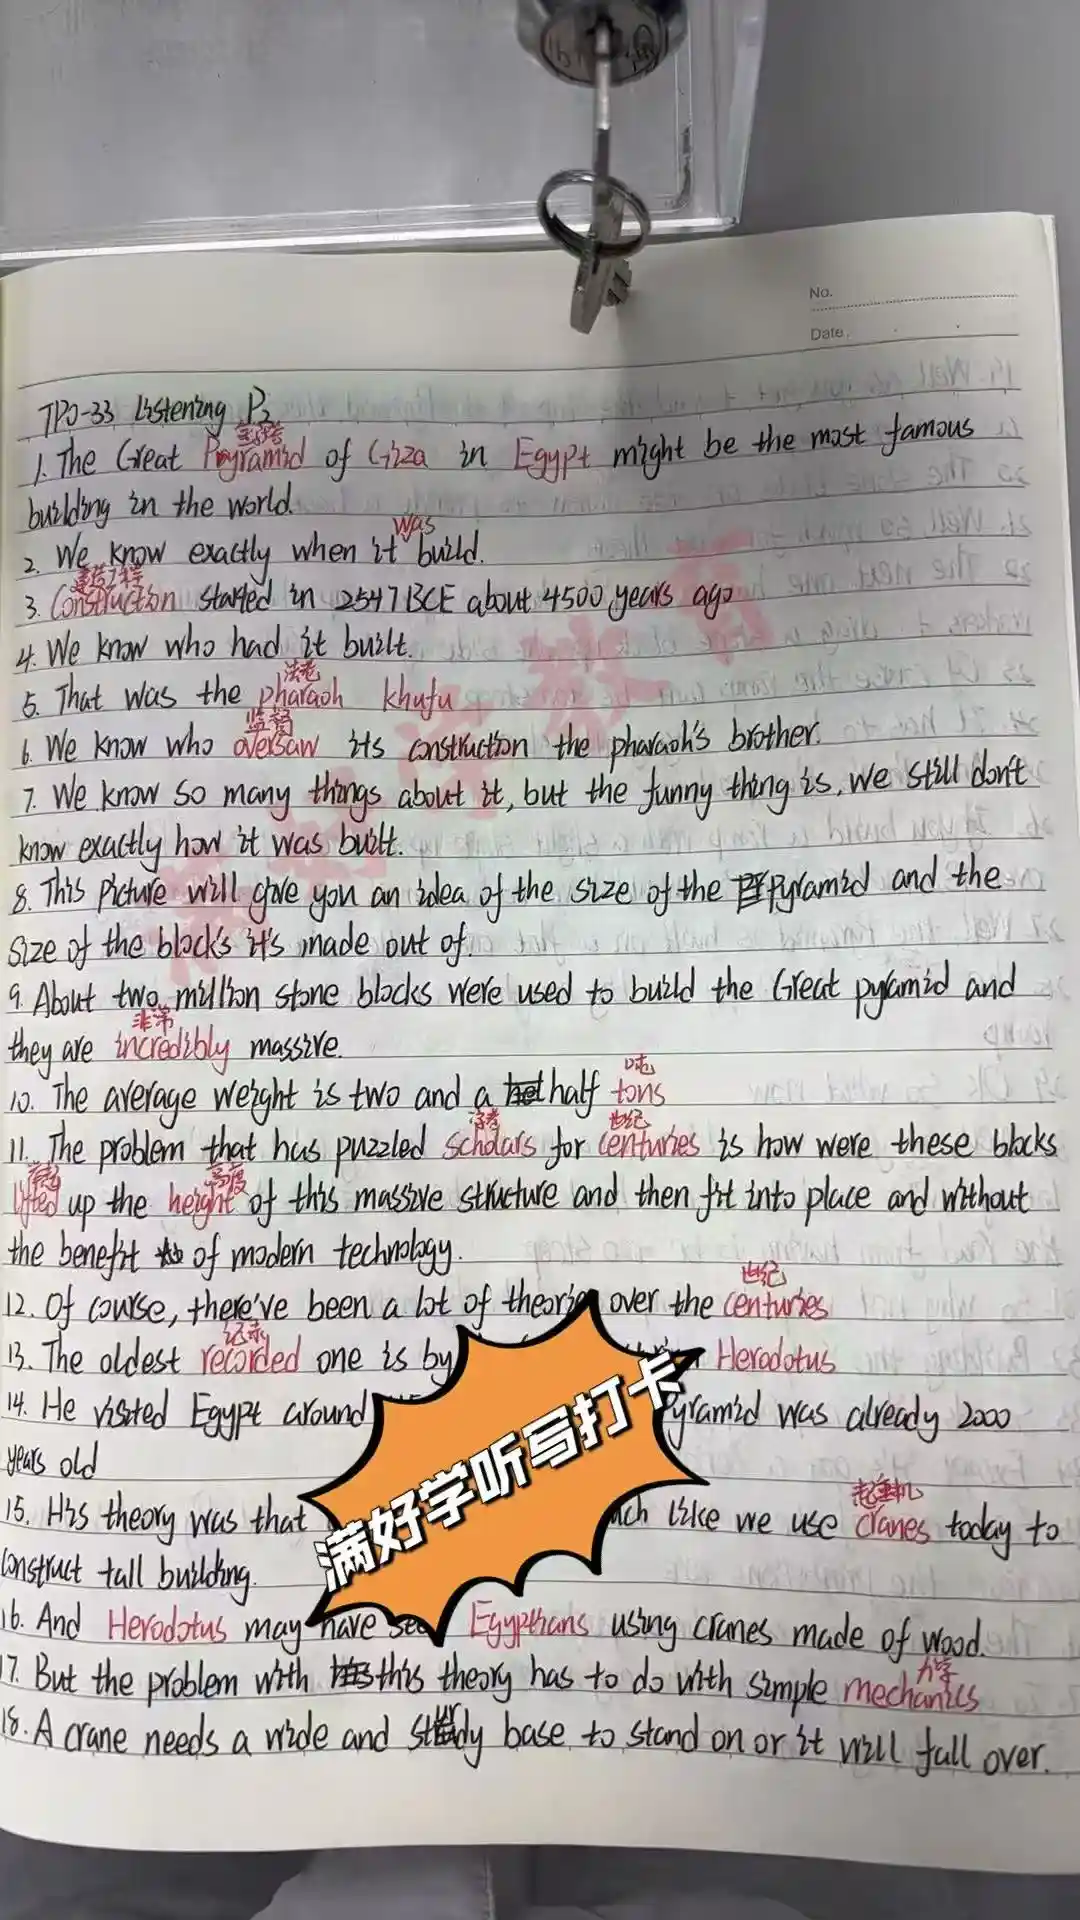 No.
Date.
TPO-33 Listening P2
金字塔
1. The Great Pyramid of Giza in Egypt might be the most famous
building in the world.
was
2. We know exactly when it build.
建造工程
3. Construction started in 2547 BCE about 4500 years ago
4. We know who had it built.
法老
5. That was the pharaoh khufu
监督
6. We know who oversaw its construction the pharaoh's brother.
7. We know so many things about it, but the funny thing is, we still don't
know exactly how it was built.
8. This picture will give you an idea of the size of the pyramid and the
size of the block's it's made out of.
9. About two million stone blocks were used to build the Great pyramid and
非常
they are incredibly massive.
吨
10. The average weight is two and a half tons
学者 世纪
11. The problem that has puzzled scholars for centuries is how were these blocks
高度
lifted up the height of this massive structure and then fit into place and without
the benefit of modern technology.
世纪
12. Of course, there've been a lot of theories over the centuries
记录
13. The oldest recorded one is by Herodotus
14. He visited Egypt around pyramid was already 2000
years old
起重机
15. His theory was that like we use cranes today to
construct tall building.
16. And Herodotus may have Egypthans using cranes made of wood.
力学
17. But the problem with this theory has to do with simple mechanics
18. A crane needs a wide and sturdy base to stand on or it will fall over.
满好学听写打卡